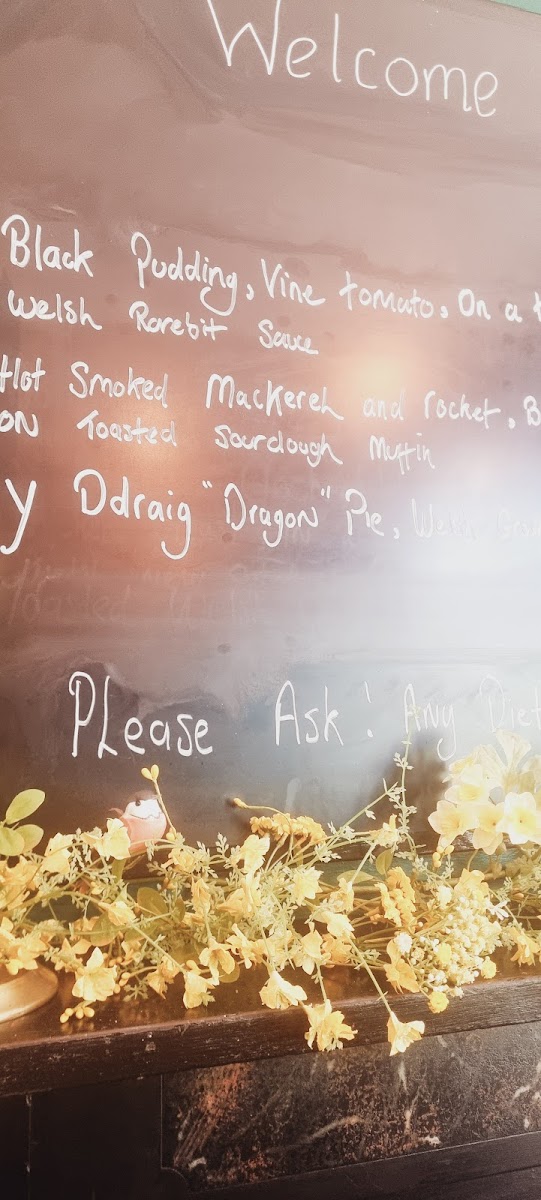 Welcome
Black Pudding, Vine tomato, On a
Welsh Rarebit Sauce
Hot Smoked Mackereh and rocket, B
ON Toasted Sourdough Muffin
y Ddraig "Dragon" Pie, Welsh
Please Ask! Any Diet